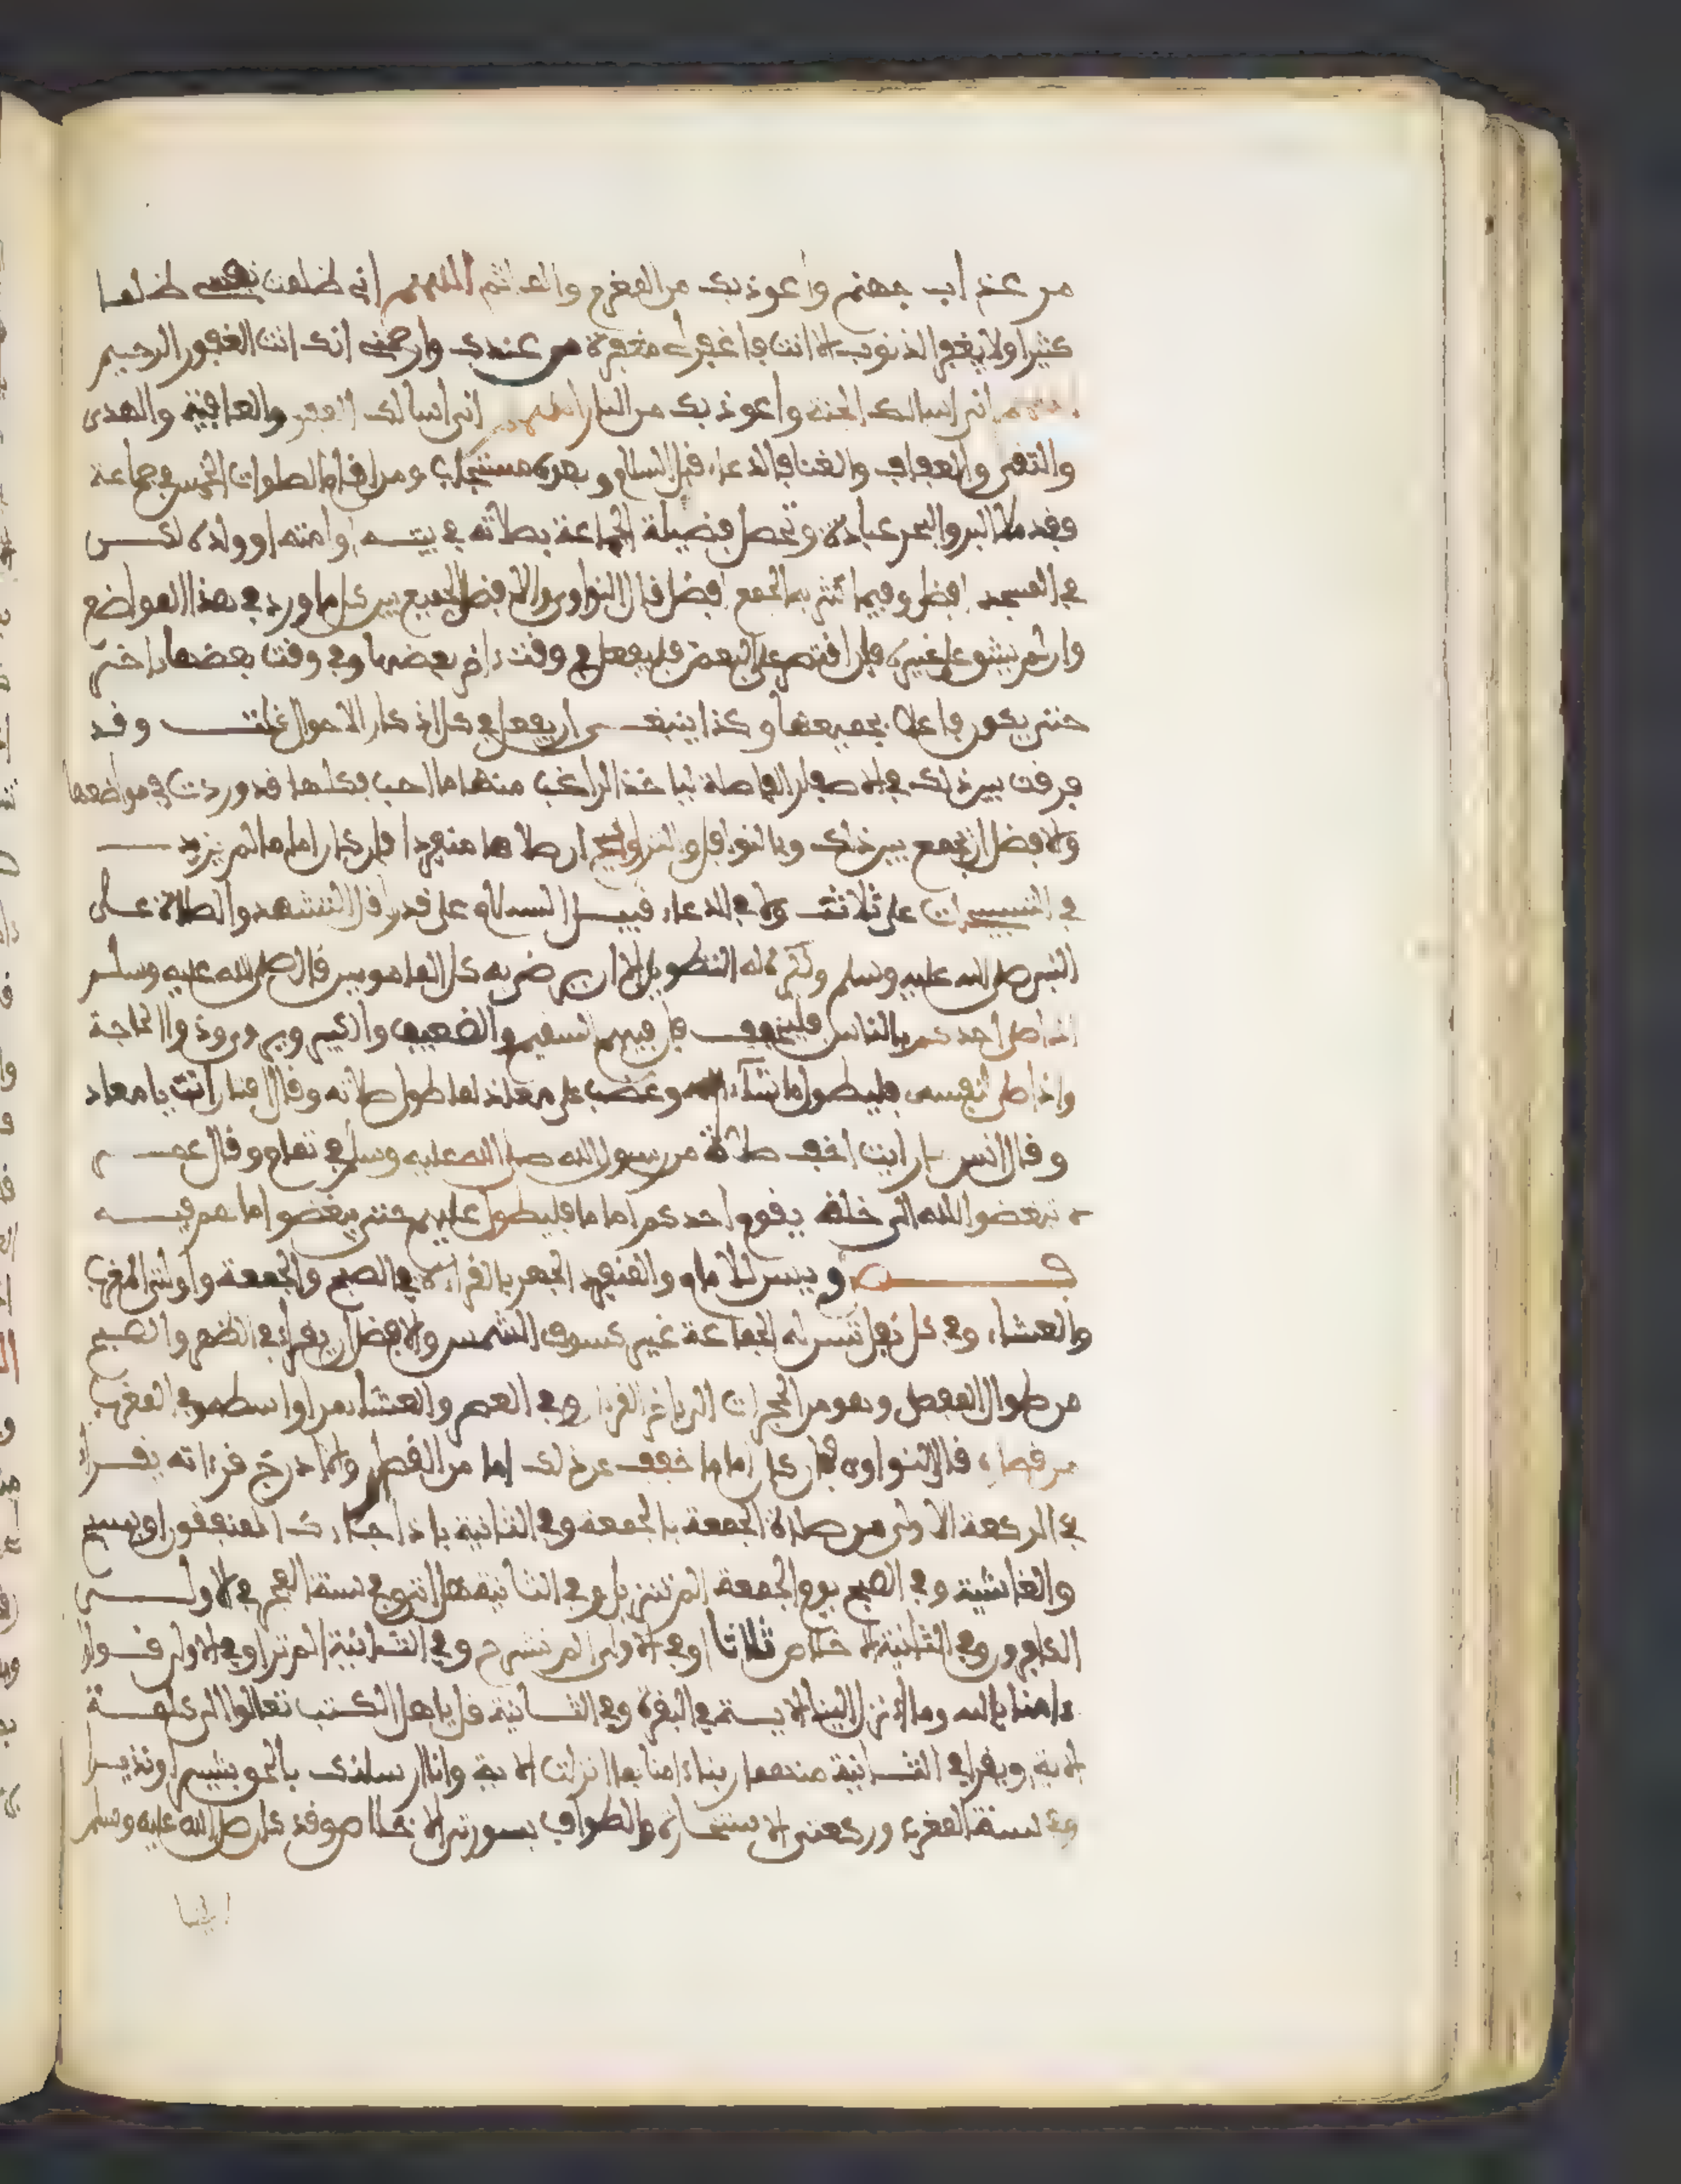 من عذاب جهنم واعوذ بك من المغرم والماثم اللهم اني ظلمت نفسي ظلما
كثيرا ولا يغفر الذنوب الا انت فاغفر لي مغفرة من عندك وارحمني انك انت الغفور الرحيم
اللهم اني اسالك الجنة واعوذ بك من النار اللهم اني اسالك العفو والعافية والهدى
والتقى والعفاف والغنا فالدعاء قبل السلام وبعده مستجاب ومن اقام الصلوات الخمس في جماعة
فقد ملا البر والبحر عبادة وتحصل فضيلة الجماعة بصلاته في بيته او امته او ولده لكن
في المسجد افضل وفيما كثر به الجمع افضل قال النواوي والافضل الجميع بين كل ما ورد في هذا المواضع
وان لم يشق على غيره فان اقتصر على البعض فليفعل في وقت اخر بعضها وفي وقت بعضها اخر
حتى يكون فاعلا بجميعها وكذا ينبغي ان يفعل في كل اذكار الاحوال وقد
فرقت بين ذلك في الاصفار الفاصلة لياخذ الراغب منها ما احب فكلها قد وردت في مواضعها
والافضل ان يجمع بين ذلك وبالنوافل والتراويح ان صلاها منفردا فان كان اماما لم يزيد
في التسبيحات على ثلاث ولا في الدعاء قبل السلام على قدر اقل التشهد والصلاة على
النبي صلى الله عليه وسلم وكره له التطويل الا ان رضي به كل المامومين قال صلى الله عليه وسلم
اذا صلى احدكم بالناس فليخفف فان فيهم السقيم والضعيف والكبير وذوا الحاجة
واذا صلى لنفسه فليطول ما شاء وغضب على معاذ لما طول صلاته وقال افتان انت يا معاذ
وقال انس ما رايت اخف صلاة من رسول الله صلى الله عليه وسلم في تمام وقال عمر
لا تبغضوا الله الى خلقه يقوم احدكم اماما فليطول عليهم حتى يبغضوا ما هم فيه
فصل ويسن للامام والمنفرد الجهر بالقراءة في الصبح والجمعة واولتي المغرب
والعشاء وفي كل نفل تسن له الجماعة غير كسوف الشمس والافضل ان يقرا في الظهر والصبح
من طوال المفصل وهو من الحجرات الى اخر القران وفي العصر والعشاء من اواسطه وفي المغرب
من قصاره قال النواوي فان كان اماما خفف عن ذلك اما من القصار والا درج قراته يقرا
في الركعة الاولى من صلاة الجمعة بالجمعة وفي الثانية باذا جاءك المنافقون او بسبح
والغاشية وفي الصبح يوم الجمعة الم تنزيل وفي الثانية هل اتى وفي سنة الفجر في الاولى
الكافرون وفي الثانية الاخلاص ثلاثا او في الاولى الم نشرح وفي الثانية الم تر او في الاولى قولوا
ءامنا بالله وما انزل الينا الاية في البقرة وفي الثانية قل ياهل الكتب تعالوا الى كلمة
الاية ويقرا في الثانية منهما ربنا ءامنا بما انزلت الاية وانا ارسلنك بالحق بشيرا ونذيرا
وفي سنة المغرب وركعتي الاستخارة والطواف بسورتي الاخلاص وقد كان صلى الله عليه وسلم